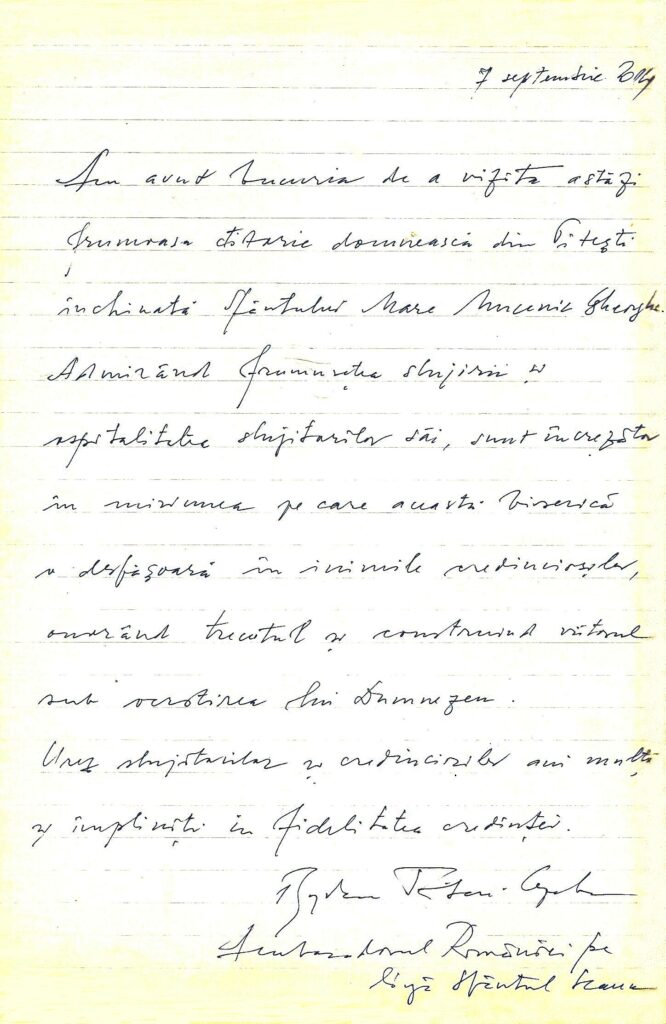 7 septembrie 2014
Am avut bucuria de a vizita astăzi
frumoasa ctitorie domnească din Pitești
închinată Sfântului Mare Mucenic Gheorghe.
Admirând frumusețea slujirii și
ospitalitatea slujitorilor săi, sunt încrezător
în misiunea pe care această biserică
o desfășoară în inimile credincioșilor,
onorând trecutul și construind viitorul
sub ocrotirea lui Dumnezeu.
Urez slujitorilor și credincioșilor ani mulți
și împliniți in fidelitatea credinței.
Bogdan Tătaru-Cazaban
Ambasadorul României pe
lîngă Sfântul Scaun